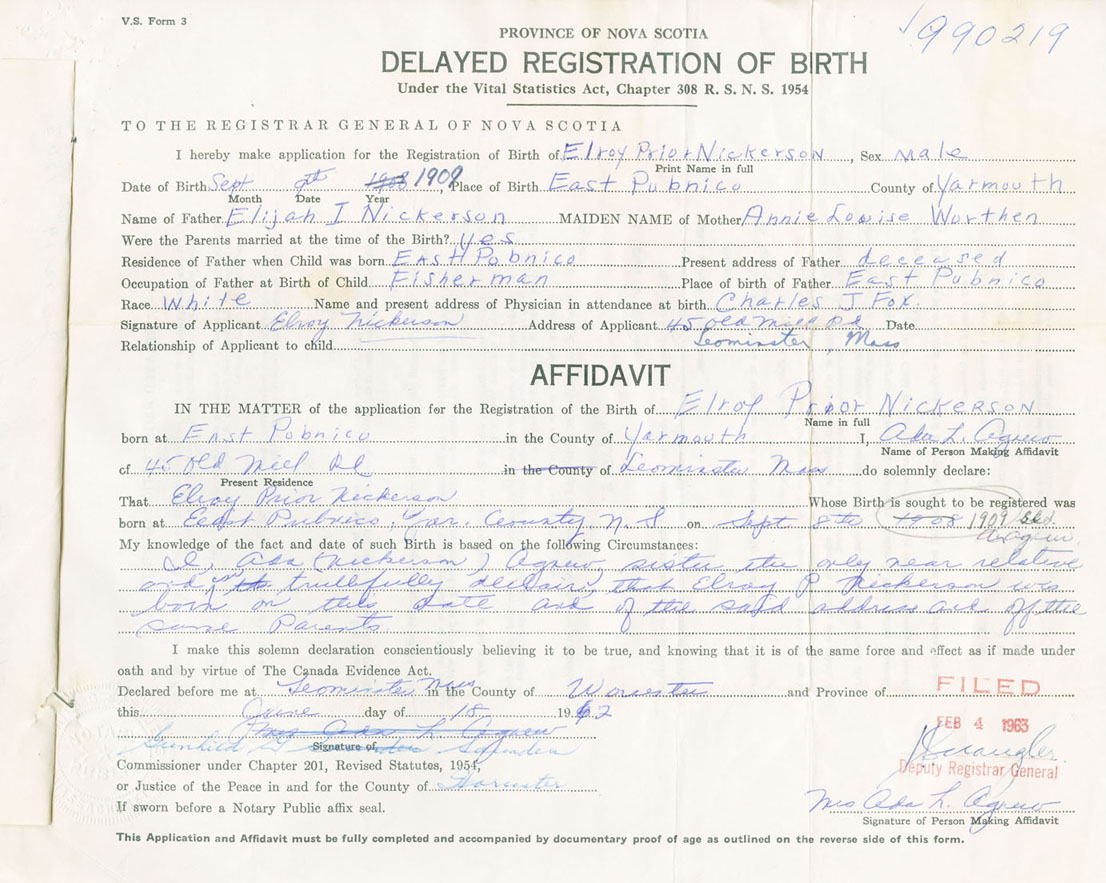 V.S. Form 3
990219
PROVINCE OF NOVA SCOTIA
DELAYED REGISTRATION OF BIRTH
Under the Vital Statistics Act, Chapter 308 R. S. N. S. 1954
TO THE REGISTRAR GENERAL OF NOVA SCOTIA
I hereby make application for the Registration of Birth of Elroy Prior Nickerson, Sex Male
Print Name in full
Date of Birth Sept 1908 1909, Place of Birth East Pubnico County of Yarmouth
Month Date Year
Name of Father Elijah I Nickerson MAIDEN NAME of Mother Annie Louise Worthen
Were the Parents married at the time of the Birth? yes
Residence of Father when Child was born East Pobnico Present address of Father deceased
Occupation of Father at Birth of Child Fisherman Place of birth of Father East Pubnico
Race White Name and present address of Physician in attendance at birth Charles J Fox
Signature of Applicant Elroy Nickerson Address of Applicant 45 old Mill Rd Date
Relationship of Applicant to child Leominster, Mass
AFFIDAVIT
IN THE MATTER of the application for the Registration of the Birth of Elroy Prior Nickerson
Name in full
born at East Pobnico in the County of Yarmouth I, Ada L. Agnew
Name of Person Making Affidavit
of 45 Old Mill Rd in the County of Leominster Mass do solemnly declare:
Present Residence
That Elroy Prior Nickerson Whose Birth is sought to be registered was
born at East Pubnico, Yar. County N. S on Sept 8th 1908 1909
Agnew
My knowledge of the fact and date of such Birth is based on the following Circumstances:
I, Ada (Nickerson) Agnew, sister the only near relative
and can truthfully declair, that Elroy P Nickerson was
born on this date and of the said address and of the
same Parents
I make this solemn declaration conscientiously believing it to be true, and knowing that it is of the same force and effect as if made under
oath and by virtue of The Canada Evidence Act.
Declared before me at Leominster Mass in the County of Worcester and Province of
FILED
this June day of 18 1962
FEB 4 1963
Mrs Ada L. Agnew
Signature of
Deputy Registrar General
Commissioner under Chapter 201, Revised Statutes, 1954,
or Justice of the Peace in and for the County of Worcester
Mrs Ada L. Agnew
If sworn before a Notary Public affix seal.
Signature of Person Making Affidavit
This Application and Affidavit must be fully completed and accompanied by documentary proof of age as outlined on the reverse side of this form.